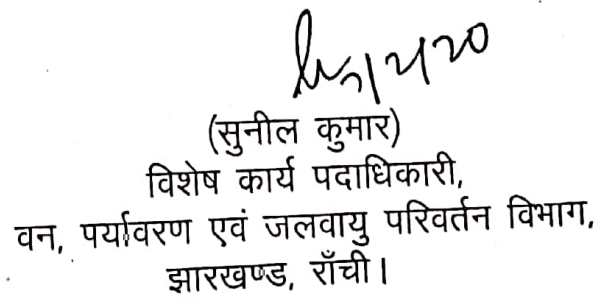 (सुनील कुमार)
विशेष कार्य पदाधिकारी,
वन, पर्यावरण एवं जलवायु परिवर्तन विभाग,
झारखण्ड, राँची।